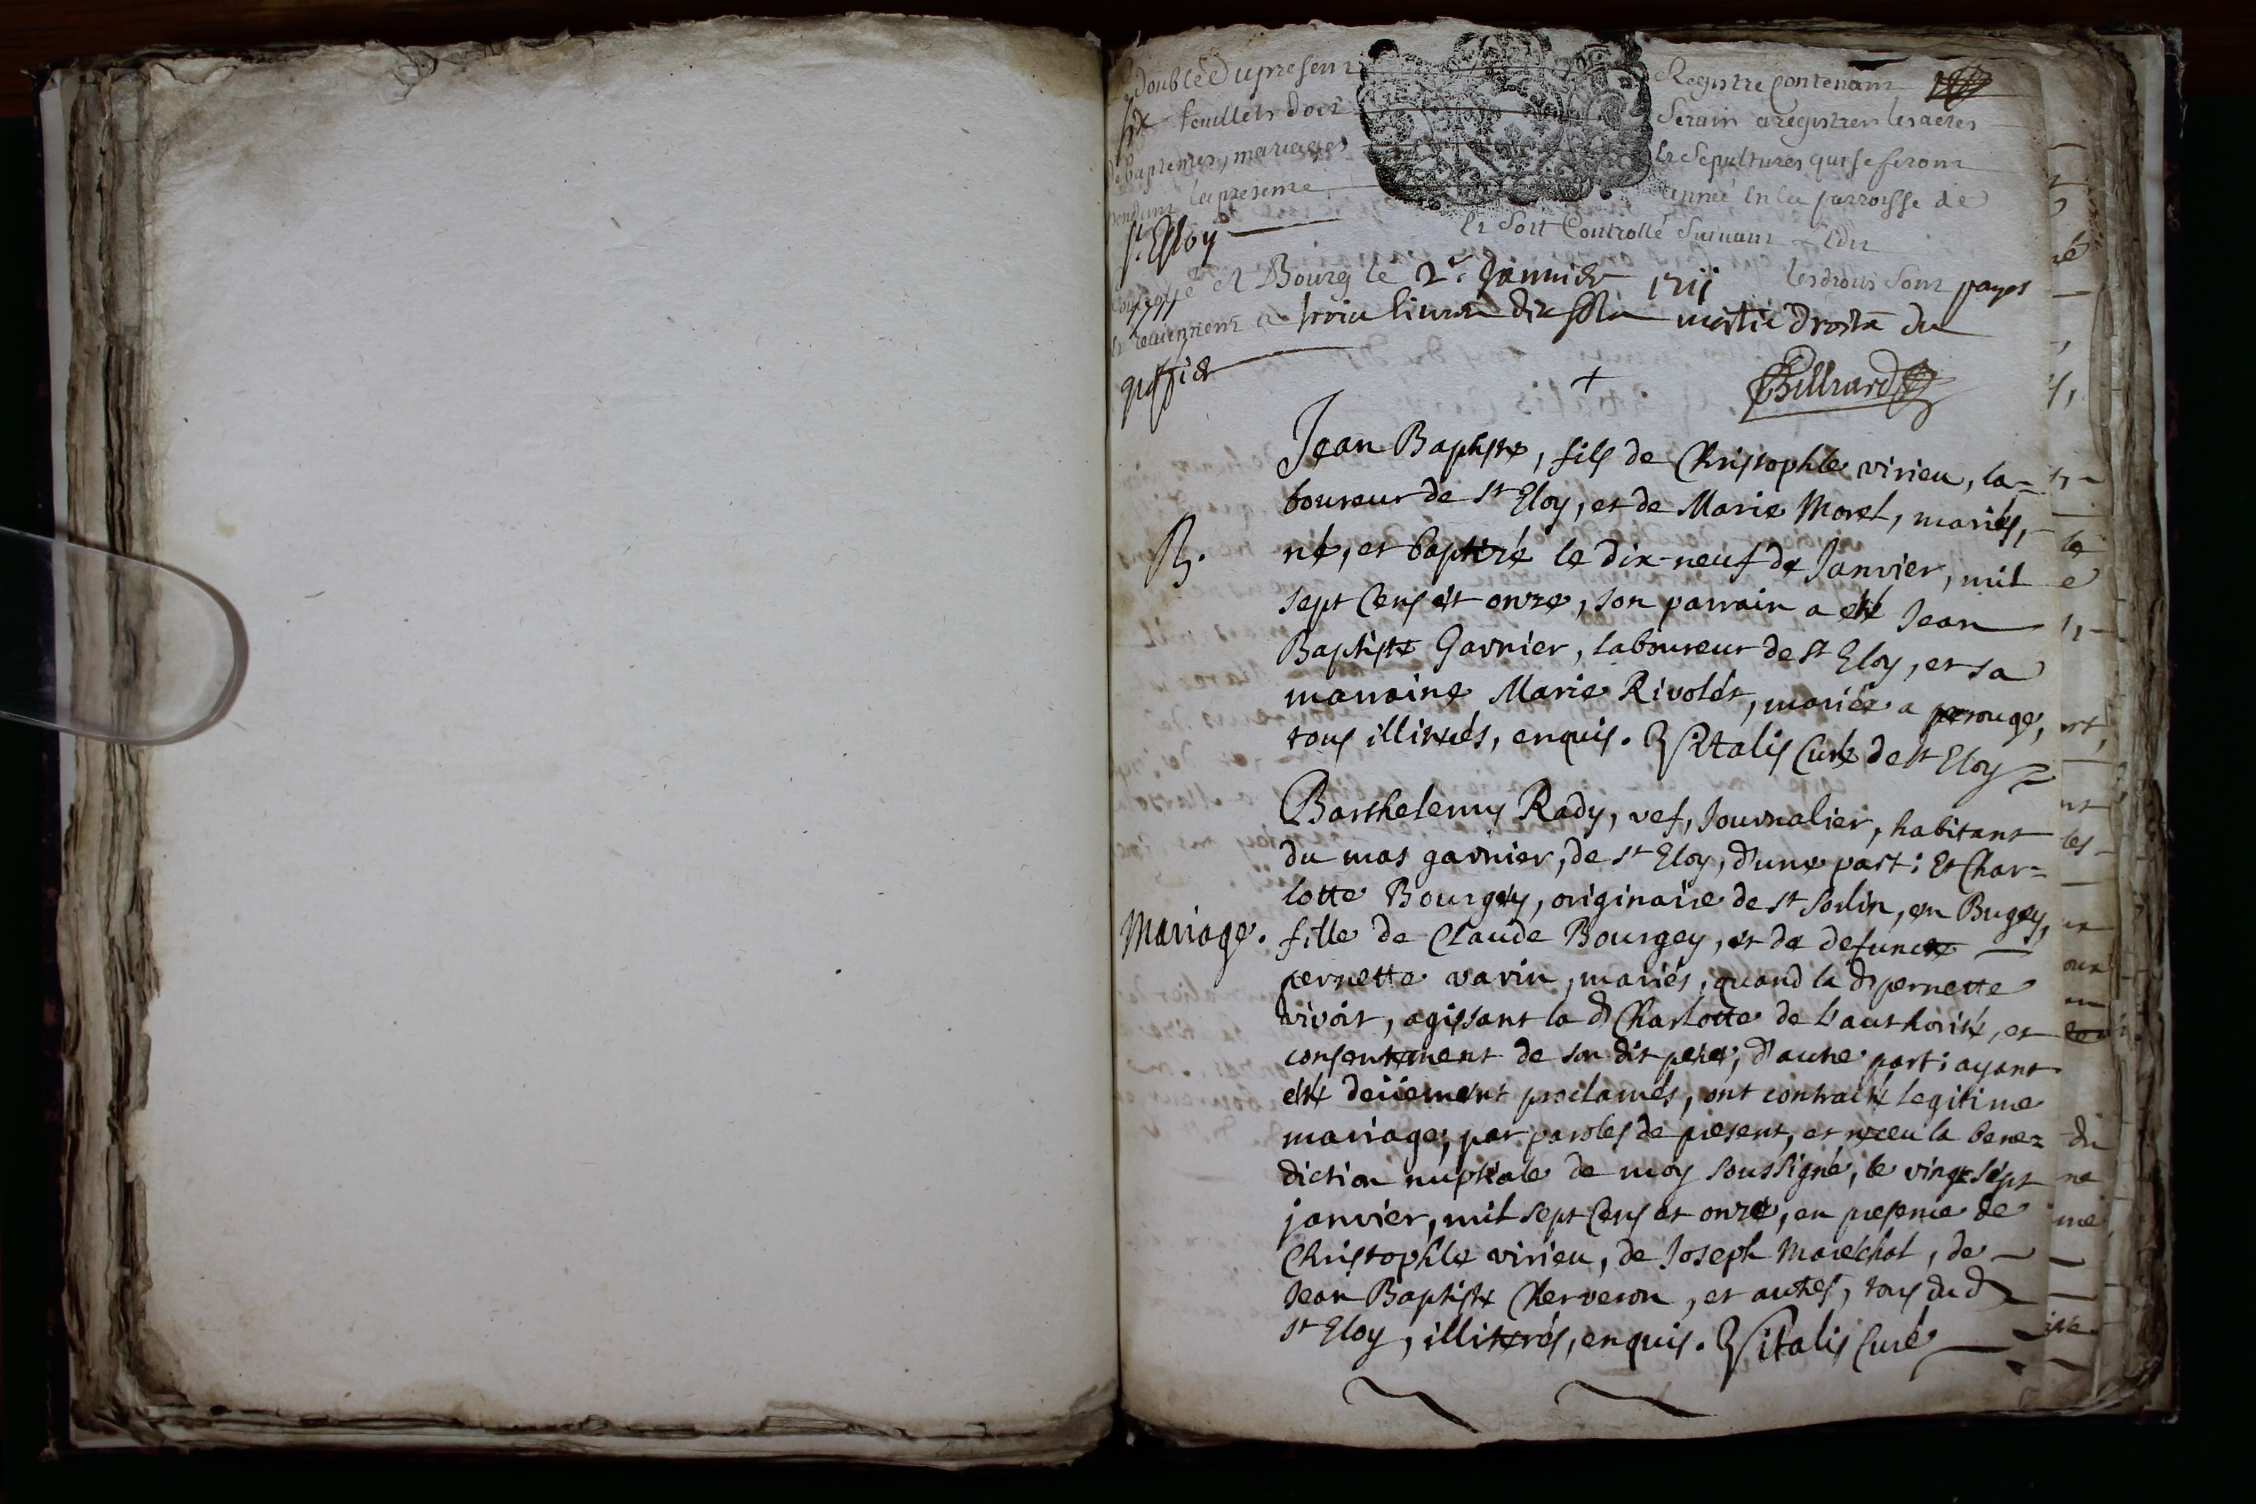 doublé Du present Registre Contenant
six feuillets doit Servir a registrer les actes
de baptemes, mariages et Sepultures qui se feront
pendant la presente année en la parroisse de
St. Eloy et Soit Controllé Suivant l'Edit
Controllé A Bourg le 2e. Janvier 1711 les droits sont payés
et reviennent a trois livres dix sols moitié droits du
greffier
Billiard
Jean Baptiste, fils de Christophle virieu, la=
boureur de st Eloy, et de Marie Morel, mariés,
B. né, et baptizé le dix-neuf de Janvier, mil
sept Cens et onze, son parrain a esté Jean
Baptiste Garnier, laboureur de st Eloy, et sa
marraine Marie Rivolét, mariée a perouge,
tous illitrés, enquis. Vitalis Curé de st Eloy
Barthelemy Rady, vef, Journalier, habitant
du mas garnier, de st Eloy, d'une part: Et Char=
lotte Bourgey, originaire de st Sorlin, en Bugey,
Mariage. fille de Claude Bourgey, et de defuncte
pernette varin, mariés, quand la d. pernette
vivoit, agissant la d. Charlotte de l'authorité, et
consentement de son dit pere, d'autre part: ayant
esté deüement proclamés, ont contracté legitime
mariage, par paroles de present, et receu la bene=
diction nuptiale de moy soussigné, le vingt sept
janvier, mil sept Cens et onze, en presence de
Christophle virieu, de Joseph Maréchal, de
Jean Baptiste Cherveron, et autres, tous du d.
st Eloy, illitérés, enquis. Vitalis Curé